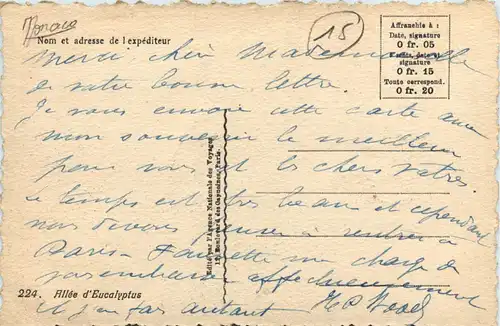 Monaco
15
Nom et adresse de l'expéditeur
Affranchie à :
Date, signature
0 fr. 05
signature
0 fr. 15
Toute correspond.
0 fr. 20
Merci chère Mademoiselle
de votre bonne lettre.
Je vous envoie cette carte avec
mon souvenir le meilleur
pour vous et les chers vôtres.
Le temps est très beau et cependant
nous devons penser à rentrer à
Paris. me charge de
vous embrasser affectueusement
et j'en fais autant
Edité par l'Agence Nationale des Voyages
12, Boulevard des Capucines, Paris.
224. Allée d'Eucalyptus